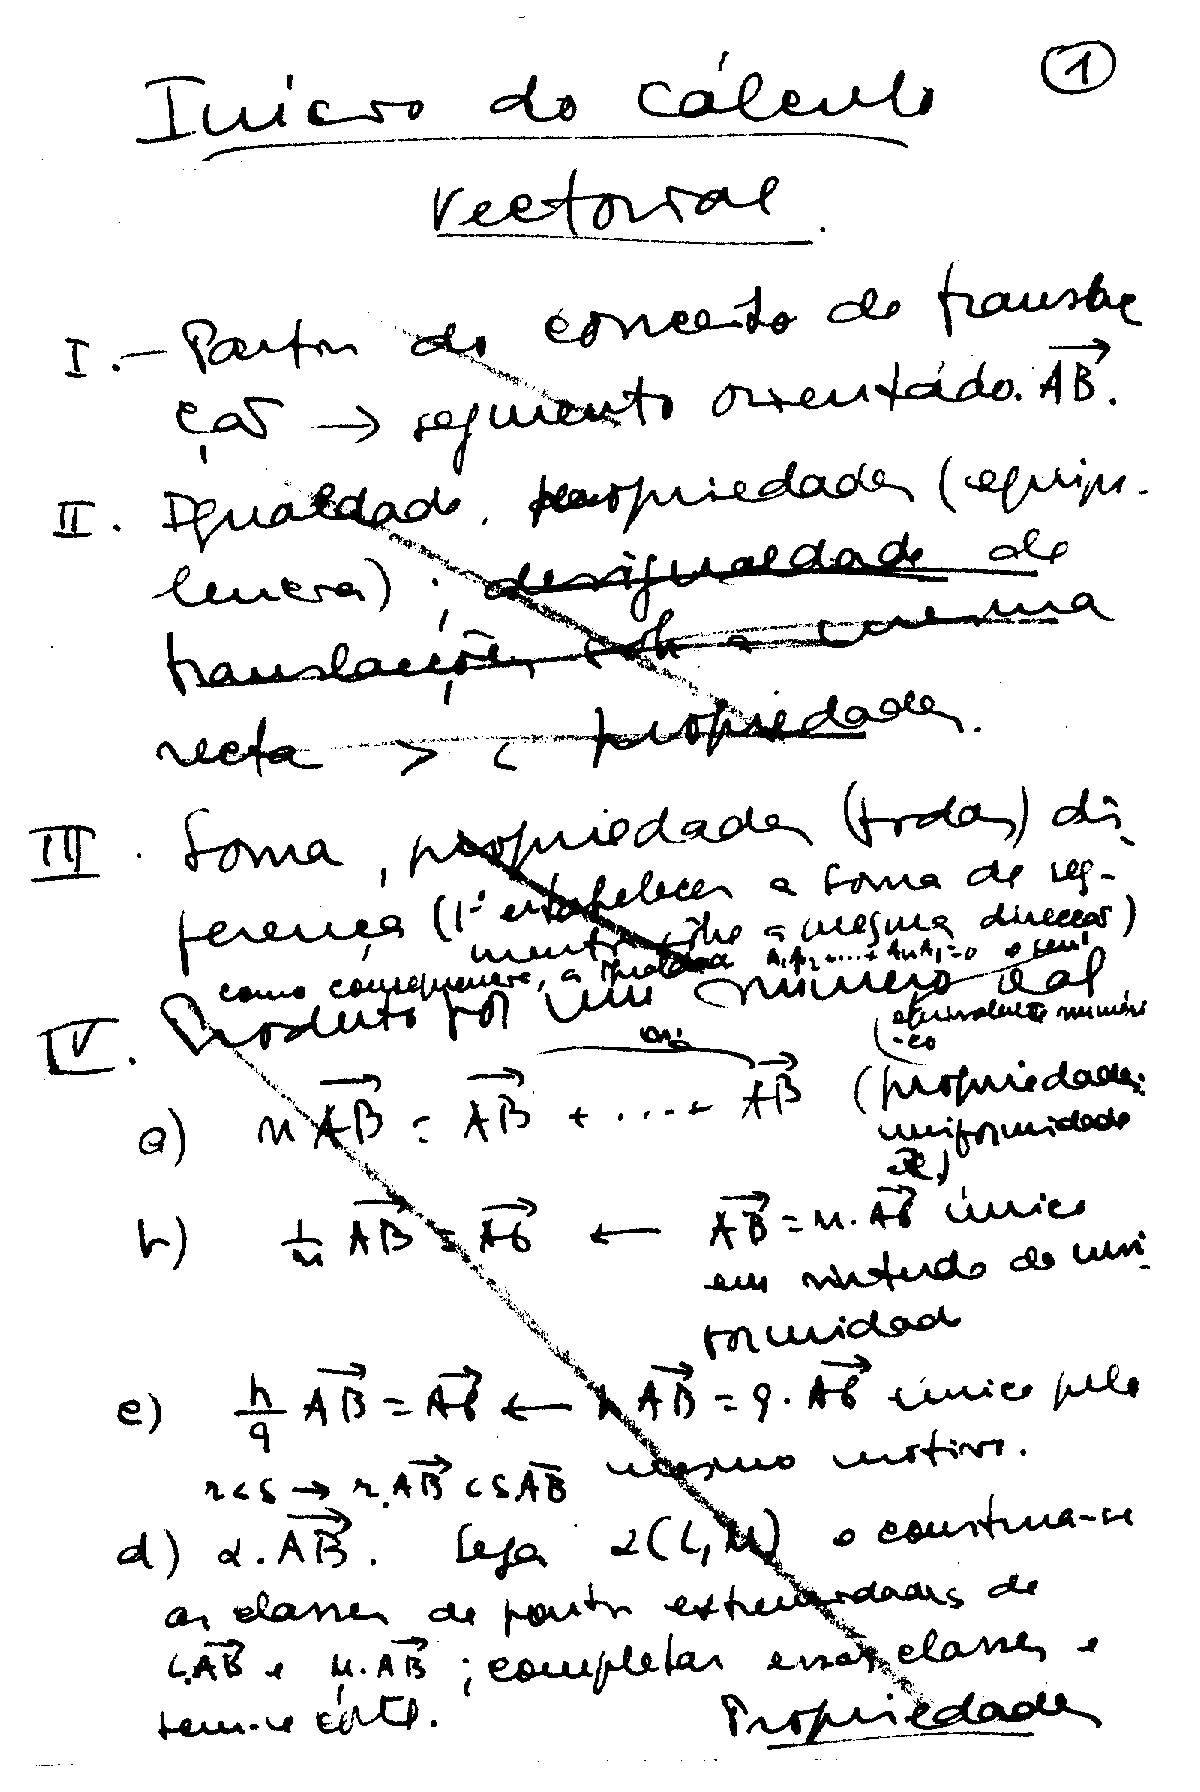 ①
Início do cálculo
vectorial.
I. - Partir do conceito de transla
ção → segmento orientado. AB.
II. Igualdade. propriedades (equipo-
lencia); desigualdade de
translações sobre a mesma
recta > < propriedades.
III. Soma, propriedades (todas) di-
ferença (1º estabelecer a soma de seg-
mentos sobre a mesma direcção)
como consequencia, a igualdade A₁A₂+...+AnA₁=0 e seu
equivalente numéri
-co
IV. Produto por um número real
a) n AB = AB + ....+ AB (propriedades:
uniformidade
etc)
b) 1/n AB = AB ← AB = n. AB único
em virtude da uni
formidad
c) p/q AB = AB ← p AB = q. AB único pelo
mesmo motivo.
r<s → r.AB < s AB
d) α. AB. Seja α(L,M) e construa-se
as classes de pontos extremidades de
L.AB e M.AB ; completar essas classes e
tem-se córte. Propriedades